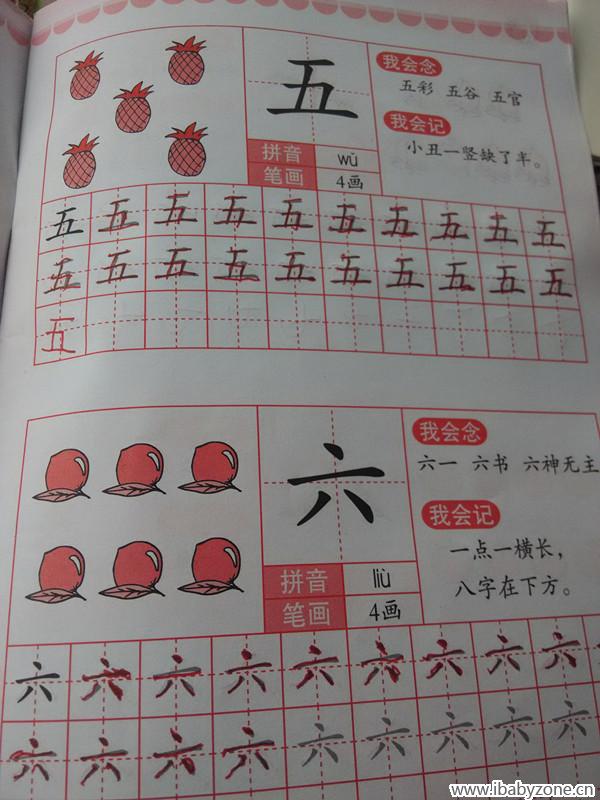 五
我会念
五彩 五谷 五官
我会记
小丑一竖缺了半。
拼音 wǔ
笔画 4画
五 五 五 五 五 五 五 五 五 五
五 五 五 五 五 五 五 五 五 五
五
六
我会念
六一 六书 六神无主
我会记
一点一横长，
八字在下方。
拼音 liù
笔画 4画
六 六 六 六 六 六 六 六 六 六
六 六 六 六 六 六 六 六 六 六
www.ibabyzone.cn